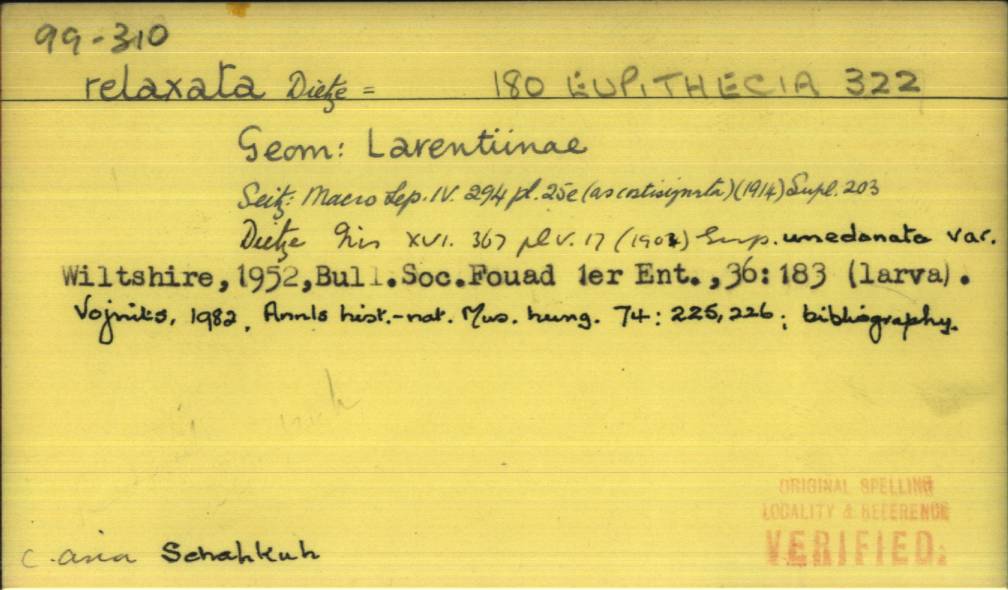 99-310
relaxata Dietze = 180 EUPITHECIA 322
Geom: Larentiinae
Seitz: Macro Lep. IV. 294 pl. 25e (as costisignata) (1914) Supl. 203
Dietze Iris XVI. 367 pl V. 17 (1904) Eup. unedonata var.
Wiltshire, 1952, Bull. Soc. Fouad 1er Ent., 36: 183 (larva).
Vojnits, 1982, Annls hist.-nat. Mus. hung. 74: 225, 226; bibliography.
C. asia Schahkuh
ORIGINAL SPELLING
LOCALITY & REFERENCE
VERIFIED.